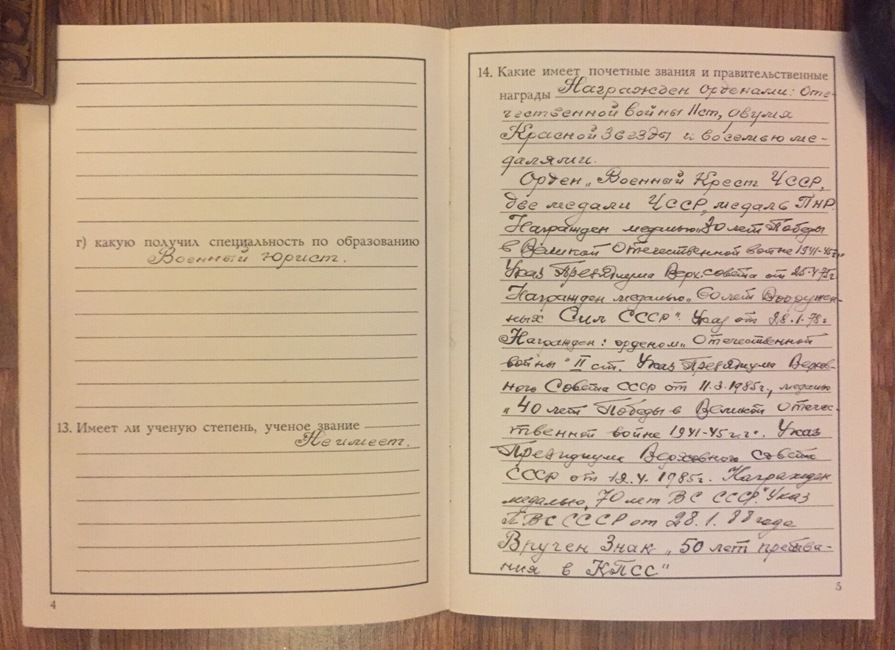 г) какую получил специальность по образованию
Военный юрист.
13. Имеет ли ученую степень, ученое звание
Не имеет.
4
14. Какие имеет почетные звания и правительственные
награды Награжден орденами: Оте-
чественной войны II ст, двумя
Красной Звезды и восемью ме-
далями.
Орден „Военный Крест ЧССР,
две медали ЧССР, медаль ПНР.
Награжден медалью „30 лет Победы
в Великой Отечественной войне 1941-45г.г.
Указ Президиума Верх. совета от 25.4.75г
Награжден медалью „60 лет Вооружен-
ных Сил СССР". Указ от 28.1.78г
Награжден: орденом „Отечественной
войны" II ст. Указ Президиума Верхов-
ного Совета СССР от 11.3.1985г., медалью
„40 лет Победы в Великой Отечес-
твенной войне 1941-45г.г". Указ
Президиума Верховного Совета
СССР от 12.4.1985г. Награжден
медалью „70 лет ВС СССР" Указ
ПВС СССР от 28.1.88 года
Вручен Знак „50 лет пребыва-
ния в КПСС"
5